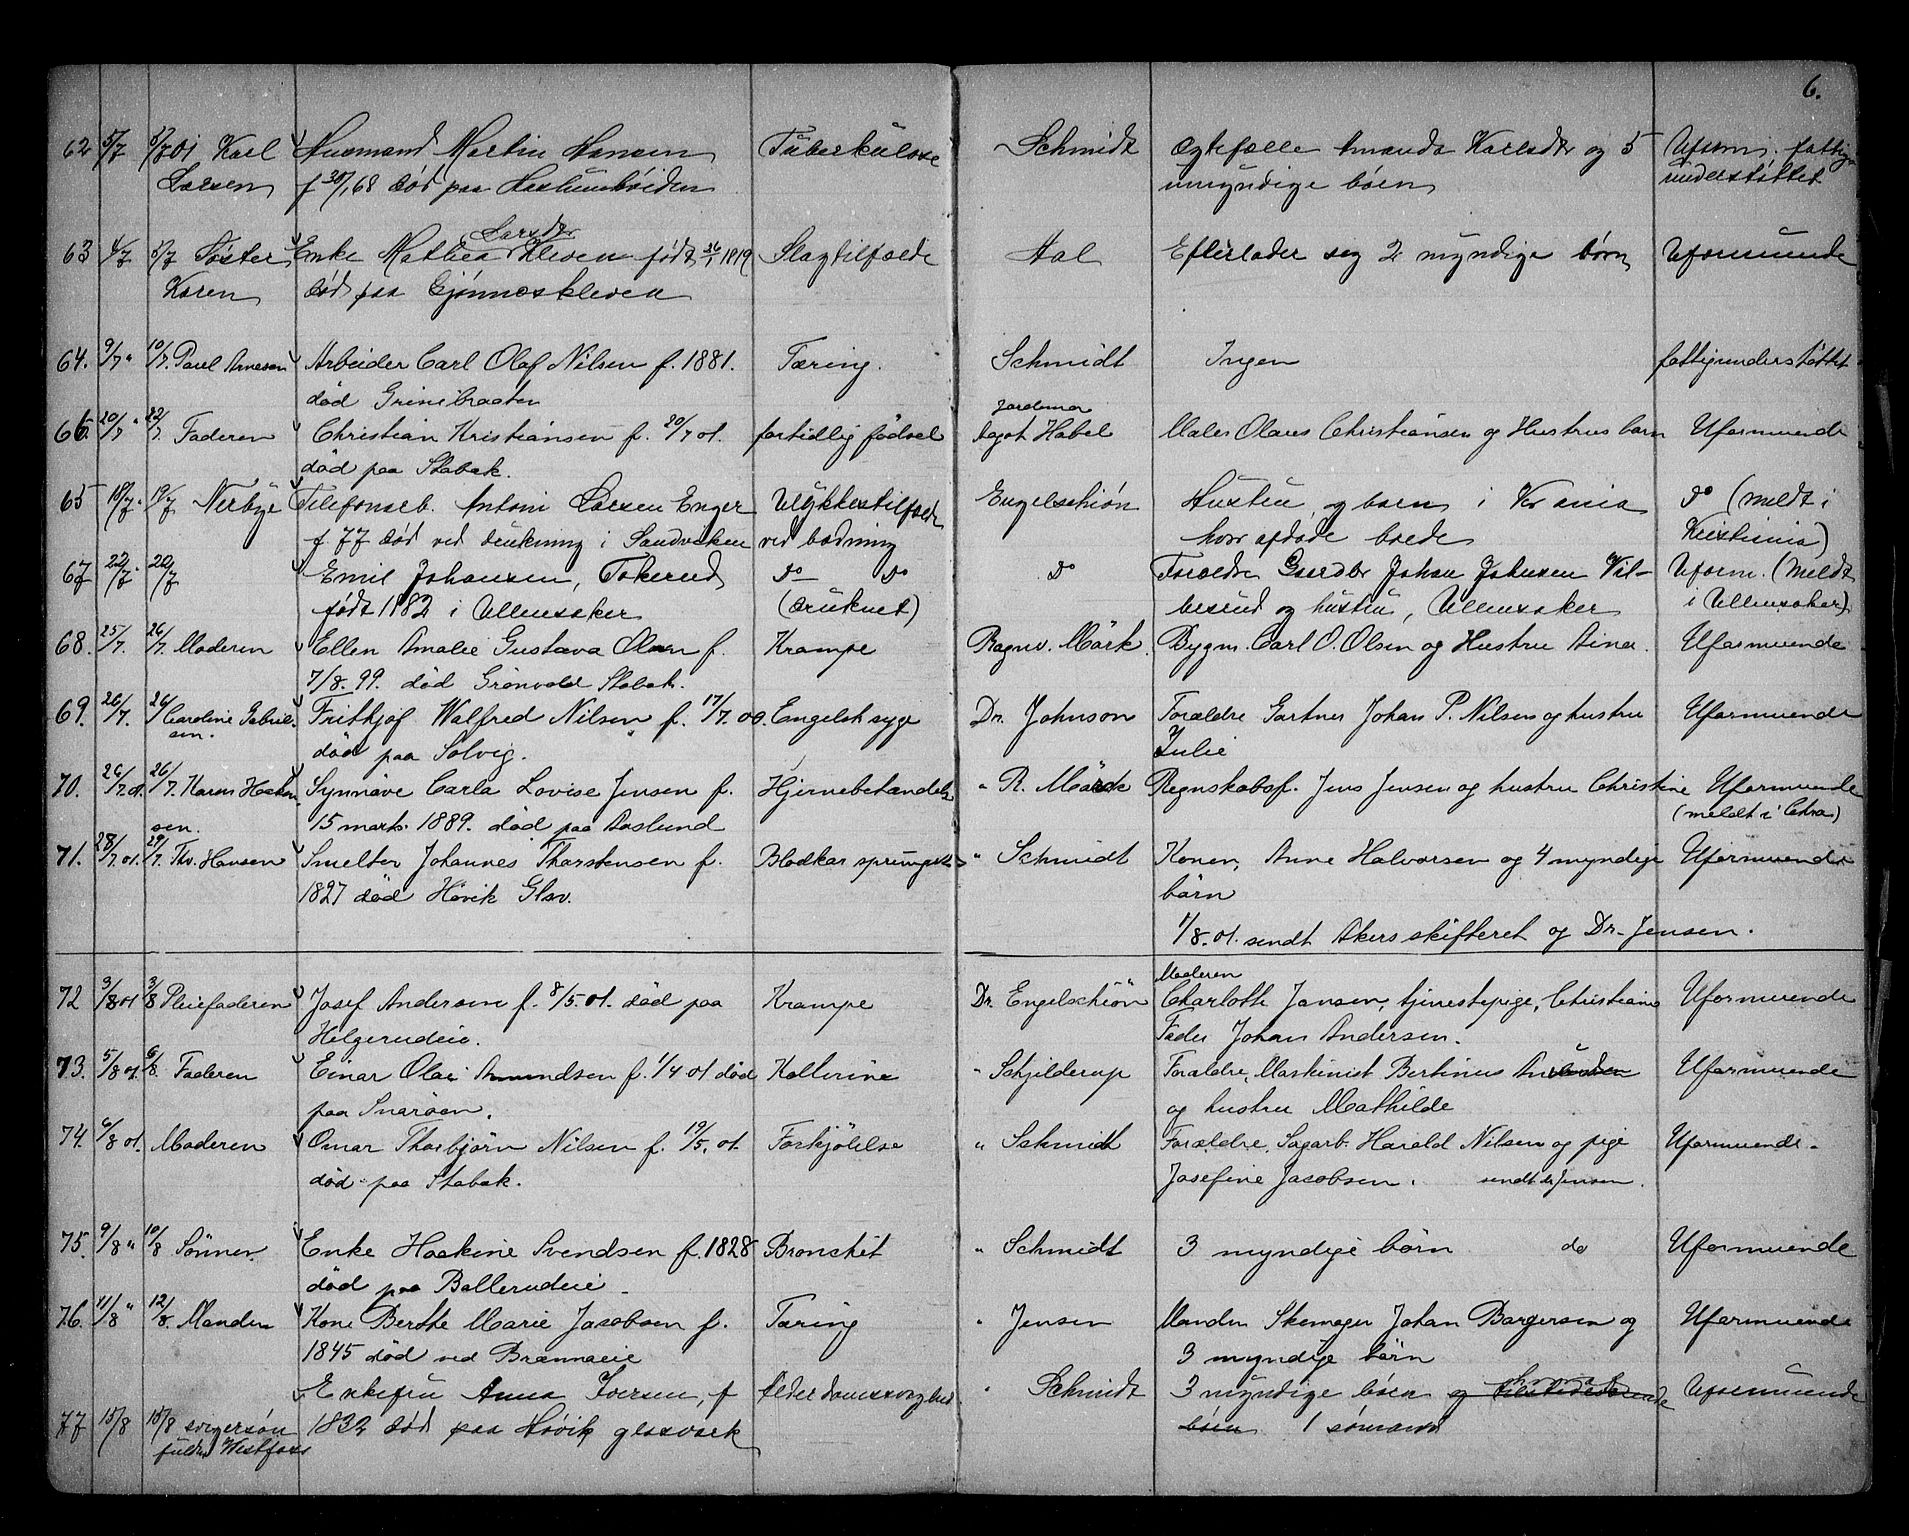 6.
62 5/7 5/7 01 Karl Husmand Martin Hansen Tuberkulose Schmidt Ægtefælle Amanda Karlsdtr og 5 Uform. fattig-
Larsen f 30/1 68 død paa Haslumhøiden umyndige børn understøttet
Larsdtr
63 4/7 5/7 Søster Enke Mathea Kleven født 26/1 1819 Slagtilfælde Aal Efterlader seg 2 myndige børn Uformuende
Karen død paa Gjønneskleven
64. 9/7 " 10/7. Paul Arnesen Arbeider Carl Olaf Nilsen f. 1881. Tæring. Schmidt Ingen fattigunderstøttet
død Grinibraaten
Jordemor
66. 20/7 " 22/7. Faderen Christian Kristiansen f. 20/7 01. fortidlig födsel Aagot Habel Maler Olaus Christiansen og Hustrus barn Uformuende
död paa Stabæk.
65 18/7 " 19/7 Nerbye Telefonarb. Anton Larsen Enger Ulykkestilfælde Engelschiøn Hustru og barn i Kr ania do (meldt i
f 77 død ved drukning i Sandviken ved badning hvor afdøde boede Kristiania)
67 22/7 " 22/7 Emil Johansen, Tokerud do do do Forældre Gaardbr Johan Johnsen Vil- Uform. (meldt
født 1882 i Ullensaker (druknet) besrud og hustru, Ullensaker i Ullensaker)
68. 25/7. 26/7. Moderen Ellen Amalie Gustava Olsen f. Krampe Ragnv. Mörk. Bygm. Carl O. Olsen og Hustru Aina. Uformuende
7/8. 99. död Grönvold Stabæk.
69. 26/7. 26/7 Caroline Gabriel- Frithjof Walfred Nilsen f. 17/7. 00. Engelsk syge Dr. Johnson Forældre Gartner Johan P. Nilsen og hustru Uformuende
sen. död paa Solvig. Julie
70. 26/7. 01. 26/7. Karen Haaken Synnöve Carla Lovise Jensen f. Hjernebetændelse " R. Mörk Regnskabsf. Jens Jensen og hustru Christine Uformuende
sen. 15 marts 1889. död paa Aaslund (meldt i Chra)
71. 28/7. 01. 29/7. Th. Hansen Smelter Johannes Thorstensen f. Blodkar sprunget " Schmidt Konen, Anne Halvorsen og 4 myndige Uformuende
1827 död Hövik Glsv. börn
1/8. 01. sendt Akers skifteret og Dr. Jensen.
Moderen
72 3/8 01 3/8 Pleiefaderen Josef Andersen f. 8/5. 01. död paa Krampe Dr. Engelschiön Charlotte Jansen, tjenestepige, Christiania Uformuende
Helgerudeie. Fader Johan Andersen.
73. 5/8 01. 6/8. Faderen Einar Olai Amundsen f. 1/4 01 död Kollerine " Schjilderup Forældre, Maskinist Bertinius Uformuende
paa Snaröen. og hustru Mathilde
74. 6/8 01. Moderen Omar Thorbjörn Nilsen f. 19/5. 01. Forkjölelse " Schmidt Forældre. Sagarb. Harald Nilsen og pige Uformuende.
död paa Stabæk. Josefine Jacobsen. sendt dr Jensen.
75. 9/8 " 10/8 Sönnen Enke Haakine Svendsen f. 1828 Bronchit " Schmidt 3 myndige börn do Uformuende
död paa Ballerudeie.
76. 11/8 " 12/8. Manden Kone Berthe Marie Jacobsen f. Tæring " Jensen Manden Skomager Johan Borgersen og Uformuende
1845 död ved Brænnaeie 3 myndige börn
Enkefru Anna Iversen, f Alderdomssvaghed " Schmidt 3 myndige børn og Uformuende
77 15/8 15/8 svigersøn 1832 død paa Høvik glasværk børn 1 sømand
Westfoss